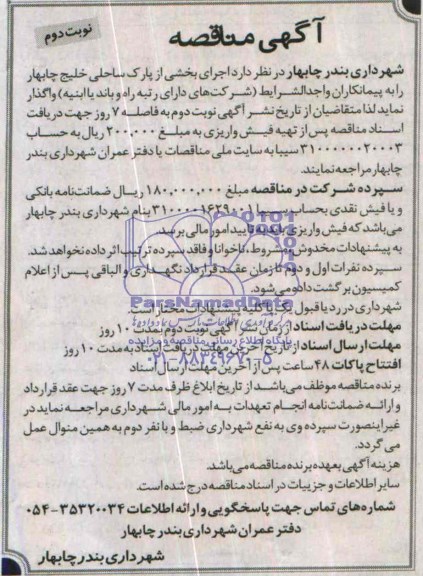 نوبت دوم
آگهی مناقصه
شهرداری بندر چابهار در نظر دارد اجرای بخشی از پارک ساحلی خلیج چابهار
را به پیمانکاران واجدالشرایط (شرکت‌های دارای رتبه راه و باند یا ابنیه) واگذار
نماید لذا متقاضیان از تاریخ نشر آگهی نوبت دوم به فاصله ۷ روز جهت دریافت
اسناد مناقصه پس از تهیه فیش واریزی به مبلغ ۲۰۰,۰۰۰ ریال به حساب
۳۱۰۰۰۰۰۰۲۰۰۰۳ سیبا به سایت ملی مناقصات یا دفتر عمران شهرداری بندر
چابهار مراجعه نمایند.
سپرده شرکت در مناقصه مبلغ ۱۸۰,۰۰۰,۰۰۰ ریال ضمانت‌نامه بانکی
و یا فیش نقدی بحساب سیبا بنام شهرداری بندر چابهار
می‌باشد که فیش واریزی باید به تایید امور مالی برسد.
به پیشنهادات مخدوش، مشروط، ناخوانا و فاقد سپرده ترتیب اثر داده نخواهد شد.
سپرده نفرات اول و دوم تا زمان عقد قرارداد نگهداری و الباقی پس از اعلام
کمیسیون برگشت داده می‌شود.
ParsNamadData
شهرداری در رد یا قبول یک یا کلیه پیشنهادات مختار است.
مهلت دریافت اسناد از زمان نشر آگهی نوبت دوم بمدت ۱۰ روز
پایگاه اطلاع رسانی مناقصه و مزایده
مهلت ارسال اسناد از تاریخ آخرین مهلت دریافت اسناد به مدت ۱۰ روز
۰۲۱-۸۸۳۴۹۶۷۰-۵
افتتاح پاکات ۴۸ ساعت پس از آخرین مهلت ارسال اسناد
برنده مناقصه موظف می‌باشد از تاریخ ابلاغ ظرف مدت ۷ روز جهت عقد قرارداد
و ارائه ضمانت‌نامه انجام تعهدات به امور مالی شهرداری مراجعه نماید در
غیر اینصورت سپرده وی به نفع شهرداری ضبط و با نفر دوم به همین منوال عمل
می گردد.
هزینه آگهی بعهده برنده مناقصه می‌باشد.
سایر اطلاعات و جزییات در اسناد مناقصه درج شده است.
شماره‌های تماس جهت پاسخگویی و ارائه اطلاعات ۳۵۳۲۰۰۳۴-۰۵۴
دفتر عمران شهرداری بندر چابهار
شهرداری بندر چابهار